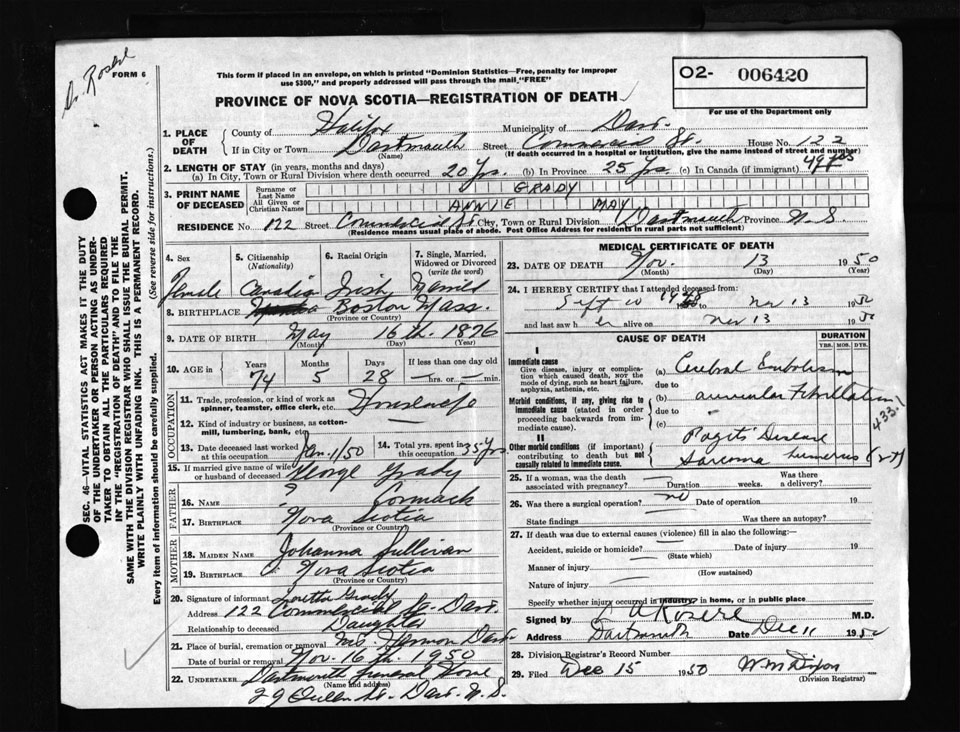 Dr. Rosere
FORM 6
This form if placed in an envelope, on which is printed "Dominion Statistics—Free, penalty for improper
use $300," and properly addressed will pass through the mail, "FREE"
PROVINCE OF NOVA SCOTIA—REGISTRATION OF DEATH
O2- 006420
For use of the Department only
1. PLACE OF DEATH County of Halifax Municipality of Dart.
If in City or Town Dartmouth (Name) Street Commercial St. House No. 122
(If death occurred in a hospital or institution, give the name instead of street and number)
2. LENGTH OF STAY (in years, months and days)
(a) In City, Town or Rural Division where death occurred 20 Yrs. (b) In Province 25 Yrs. (c) In Canada (if immigrant) 49 yrs
3. PRINT NAME OF DECEASED Surname or Last Name GRADY
All Given or Christian Names ANNIE MAY
RESIDENCE No. 122 Street Commercial St City, Town or Rural Division Dartmouth Province N.S.
(Residence means usual place of abode. Post Office Address for residents in rural parts not sufficient)
4. Sex Female
5. Citizenship (Nationality) Canadian
6. Racial Origin Irish
7. Single, Married, Widowed or Divorced (write the word) Married
8. BIRTHPLACE Boston Mass.
(Province or Country)
9. DATE OF BIRTH May 16th. 1876
(Month) (Day) (Year)
10. AGE in Years 74 Months 5 Days 28 If less than one day old
— hrs. or — min.
OCCUPATION
11. Trade, profession, or kind of work as spinner, teamster, office clerk, etc. Housewife
12. Kind of industry or business, as cotton-mill, lumbering, bank, etc. —
13. Date deceased last worked at this occupation Jan. 1/50
14. Total yrs. spent in this occupation 35 Yrs
15. If married give name of wife or husband of deceased George Grady
FATHER
16. NAME ? Cormack
17. BIRTHPLACE Nova Scotia
(Province or Country)
MOTHER
18. MAIDEN NAME Johanna Sullivan
19. BIRTHPLACE Nova Scotia
(Province or Country)
20. Signature of informant Loretta Grady
Address 122 Commercial St. Dart.
Relationship to deceased Daughter
21. Place of burial, cremation or removal Mt. Hermon Dart.
Date of burial or removal Nov. 16th. 1950
22. UNDERTAKER Dartmouth Funeral Home
(Name and address)
29 Queen St. Dart. N.S.
MEDICAL CERTIFICATE OF DEATH
23. DATE OF DEATH Nov. 13 1950
(Month) (Day) (Year)
24. I HEREBY CERTIFY that I attended deceased from:
Sept 10 1948 to Nov 13 1950
and last saw her alive on Nov 13 1950
CAUSE OF DEATH
DURATION
YRS. MOS. DYS.
I
Immediate cause
Give disease, injury or complication which caused death, not the mode of dying, such as heart failure, asphyxia, asthenia, etc.
(a) Cerebral Embolism
due to
Morbid conditions, if any, giving rise to immediate cause (stated in order proceeding backwards from immediate cause).
(b) auricular Fibrillation
due to
(c)
433.1
II
Other morbid conditions (if important) contributing to death but not causally related to immediate cause.
Pagets Disease
Sarcoma humerus
25. If a woman, was the death associated with pregnancy? — Duration weeks. Was there a delivery?
26. Was there a surgical operation? no Date of operation 19
State findings Was there an autopsy?
27. If death was due to external causes (violence) fill in also the following:
Accident, suicide or homicide? Date of injury 19
(State which)
Manner of injury
(How sustained)
Nature of injury
Specify whether injury occurred in industry, in home, or in public place
Signed by A Rosere M.D.
Address Dartmouth Date Dec 11 1950
28. Division Registrar's Record Number
29. Filed Dec 15 1950 W.M. Dixon
(Division Registrar)
SEC. 46—VITAL STATISTICS ACT MAKES IT THE DUTY
OF THE UNDERTAKER OR PERSON ACTING AS UNDER-
TAKER TO OBTAIN ALL THE PARTICULARS REQUIRED
IN THE "REGISTRATION OF DEATH" AND TO FILE THE
SAME WITH THE DIVISION REGISTRAR WHO SHALL ISSUE THE BURIAL PERMIT.
WRITE PLAINLY WITH UNFADING INK. THIS IS A PERMANENT RECORD.
Every item of information should be carefully supplied. (See reverse side for instructions.)